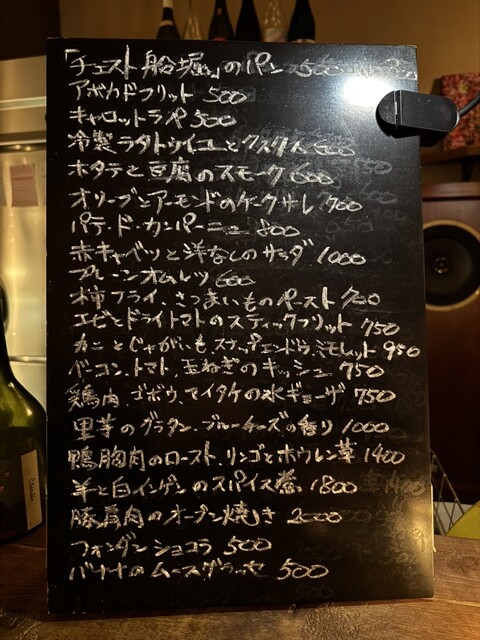 「チェスト船堀」のパン 500
アボカドフリット 500
キャロットラペ 500
冷製ラタトゥイユとクスクス 600
ホタテと豆腐のスモーク 600
オリーブとアーモンドのケークサレ 700
パテ・ド・カンパーニュ 800
赤キャベツと洋なしのサラダ 1000
プレーンオムレツ 600
柿フライ、さつまいものペースト 700
エビとドライトマトのスティックフリット 750
カニとじゃがいも、スナップエンドウ、ミモレット 950
ベーコン、トマト、玉ねぎのキッシュ 750
鶏肉、ゴボウ、マイタケの水ギョーザ 750
里芋のグラタン、ブルーチーズの香り 1000
鴨胸肉のロースト、リンゴとホウレン草 1400
羊と白インゲンのスパイス煮 1800
豚肩肉のオーブン焼き 2000
フォンダンショコラ 500
バナナのムースグラッセ 500